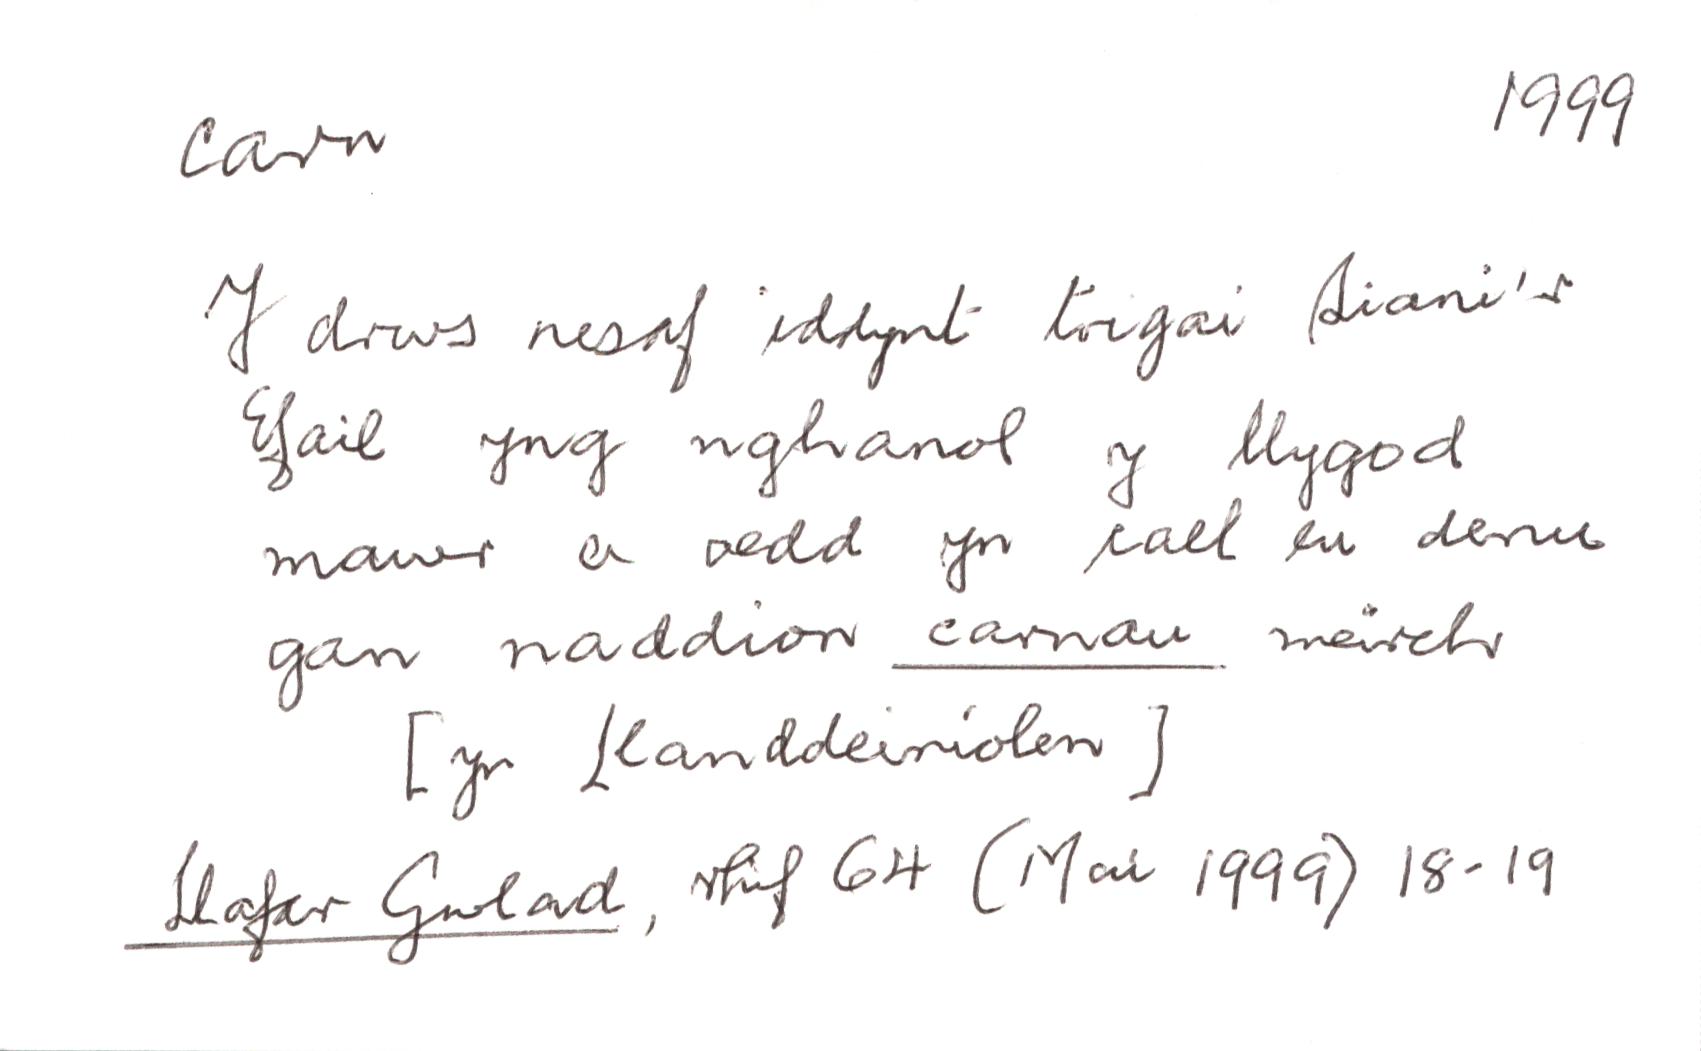 carn
1999
Y drws nesaf iddynt trigai Siani'r
Efail yng nghanol y llygod
mawr a oedd yn cael eu denu
gan naddion carnau meirch
[yn Llanddeiniolen]
Llafar Gwlad, rhif 64 (Mai 1999) 18-19